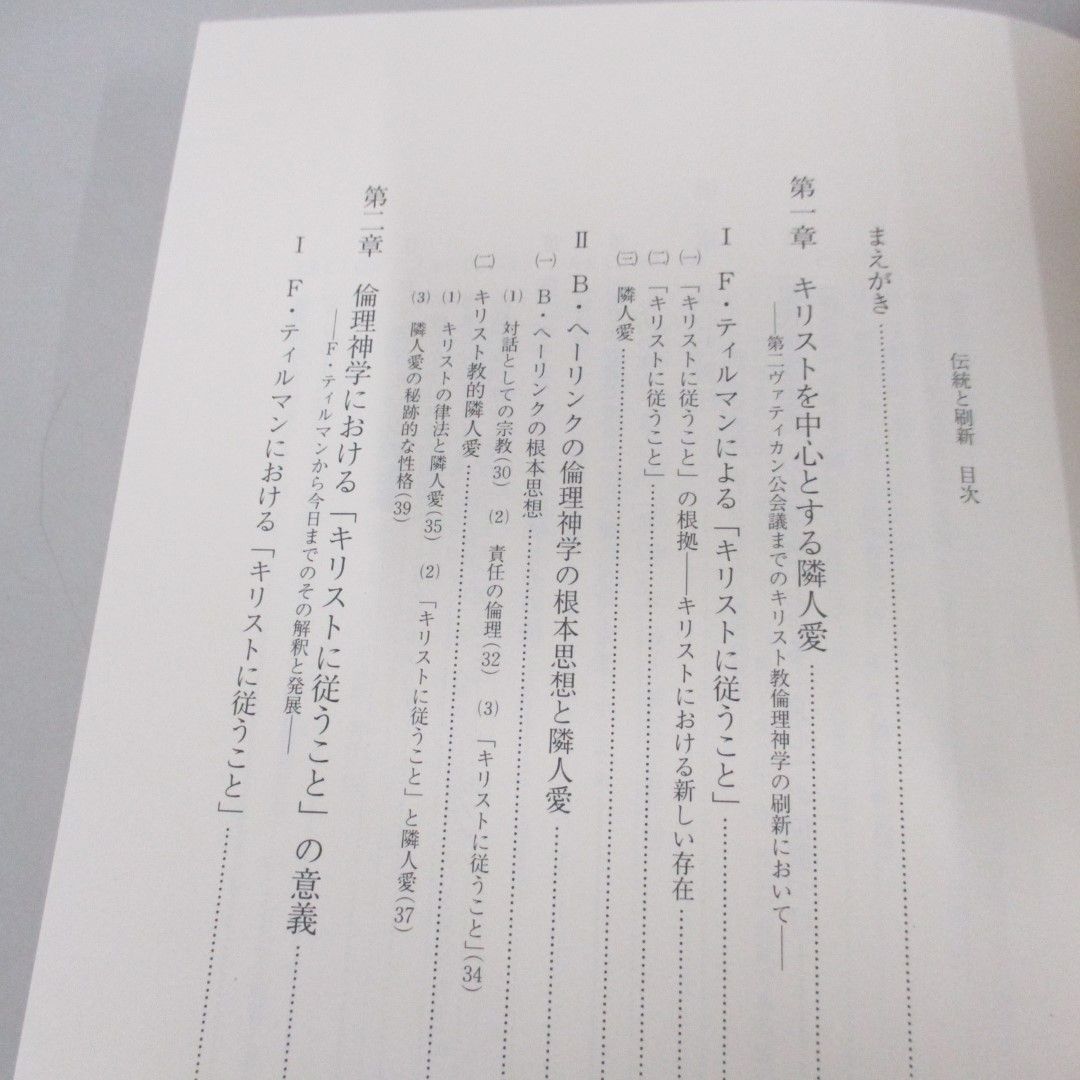 伝統と刷新　目次
まえがき
第一章　キリストを中心とする隣人愛
――第二ヴァティカン公会議までのキリスト教倫理神学の刷新において――
Ⅰ　F・ティルマンによる「キリストに従うこと」
㈠　「キリストに従うこと」の根拠――キリストにおける新しい存在
㈡　「キリストに従うこと」
㈢　隣人愛
Ⅱ　B・ヘーリンクの倫理神学の根本思想と隣人愛
㈠　B・ヘーリンクの根本思想
⑴　対話としての宗教(30)　⑵　責任の倫理(32)　⑶　「キリストに従うこと」(34)
㈡　キリスト教的隣人愛
⑴　キリストの律法と隣人愛(35)　⑵　「キリストに従うこと」と隣人愛(37)
⑶　隣人愛の秘跡的な性格(39)
第二章　倫理神学における「キリストに従うこと」の意義
――F・ティルマンから今日までのその解釈と発展――
Ⅰ　F・ティルマンにおける「キリストに従うこと」